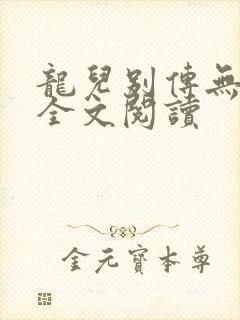 龍兒別傳無
全文閱讀
金元寶本尊